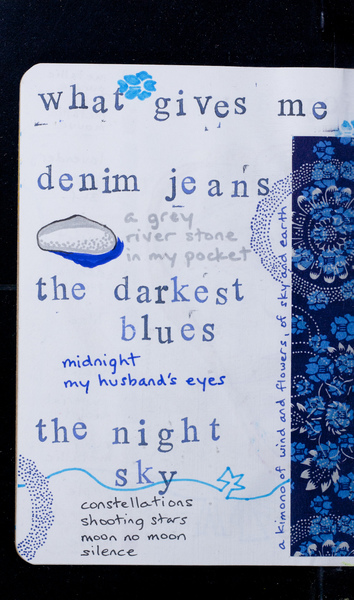 what gives me
denim jeans
a grey
river stone
in my pocket
the darkest
blues
midnight
my husband's eyes
the night
sky
constellations
shooting stars
moon no moon
silence
a kimono of wind and flowers, of sky and earth